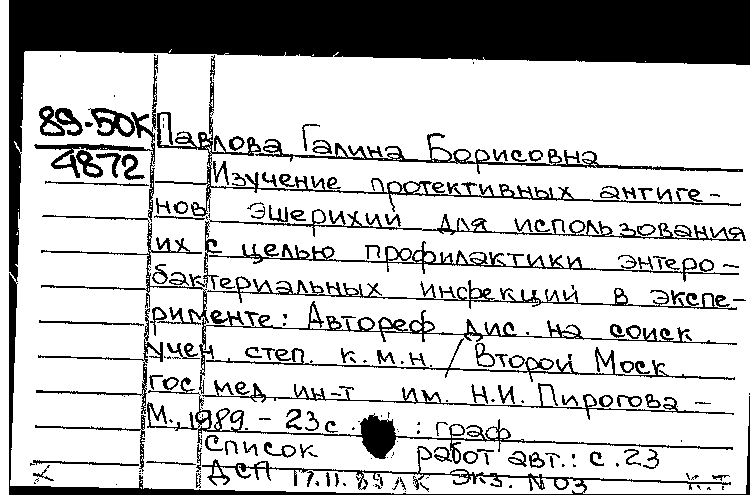 89-50К
4872
Павлова, Галина Борисовна
Изучение протективных антиге-
нов эшерихий для использования
их с целью профилактики энтеро-
бактериальных инфекций в экспе-
рименте: Автореф дис. на соиск.
учен. степ. к.м.н. / Второй Моск.
гос мед. ин-т им. Н.И. Пирогова -
М., 1989. - 23 с. : граф
Список работ авт.: с. 23
ДСП 17.11.89 ЛК экз. N 03 К.Т